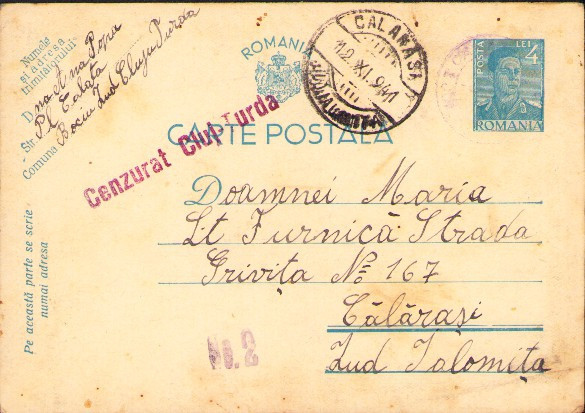 Numele
și adresa
trimițătorului
D na Ana Popa
Str. Pl. Calata
Comuna Bociu Jud Cluju Turda
Pe această parte se scrie
numai adresa
ROMANIA
CALARASI
12 XI. 941
POSTA LEI 4
ROMANIA
CARTE POSTALA
Cenzurat Cluj-Turda
Doamnei Maria
Lt Furnică Strada
Grivița No 167
Călărași
Jud Ialomița
No. 2